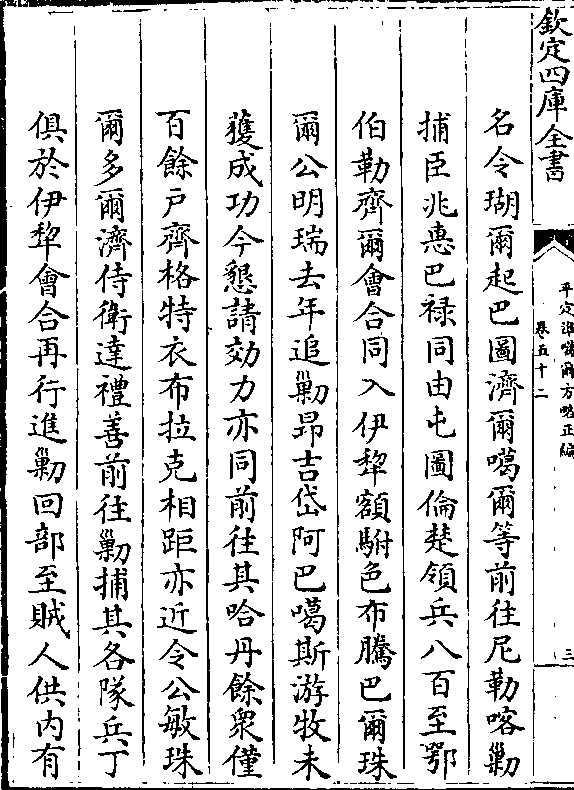 欽定四庫全書
平定準噶爾方略正編
卷五十二
三
名令瑚爾起巴圖濟爾噶爾等前往尼勒喀勦
捕臣兆惠巴祿同由屯圖倫楚領兵八百至鄂
伯勒齊爾會合同入伊犂額駙色布騰巴爾珠
爾公明瑞去年追勦昂吉岱阿巴噶斯游牧未
獲成功今懇請効力亦同前往其哈丹餘衆僅
百餘戶齊格特衣布拉克相距亦近令公敏珠
爾多爾濟侍衛達禮善前往勦捕其各隊兵丁
俱於伊犂會合再行進勦回部至賊人供內有